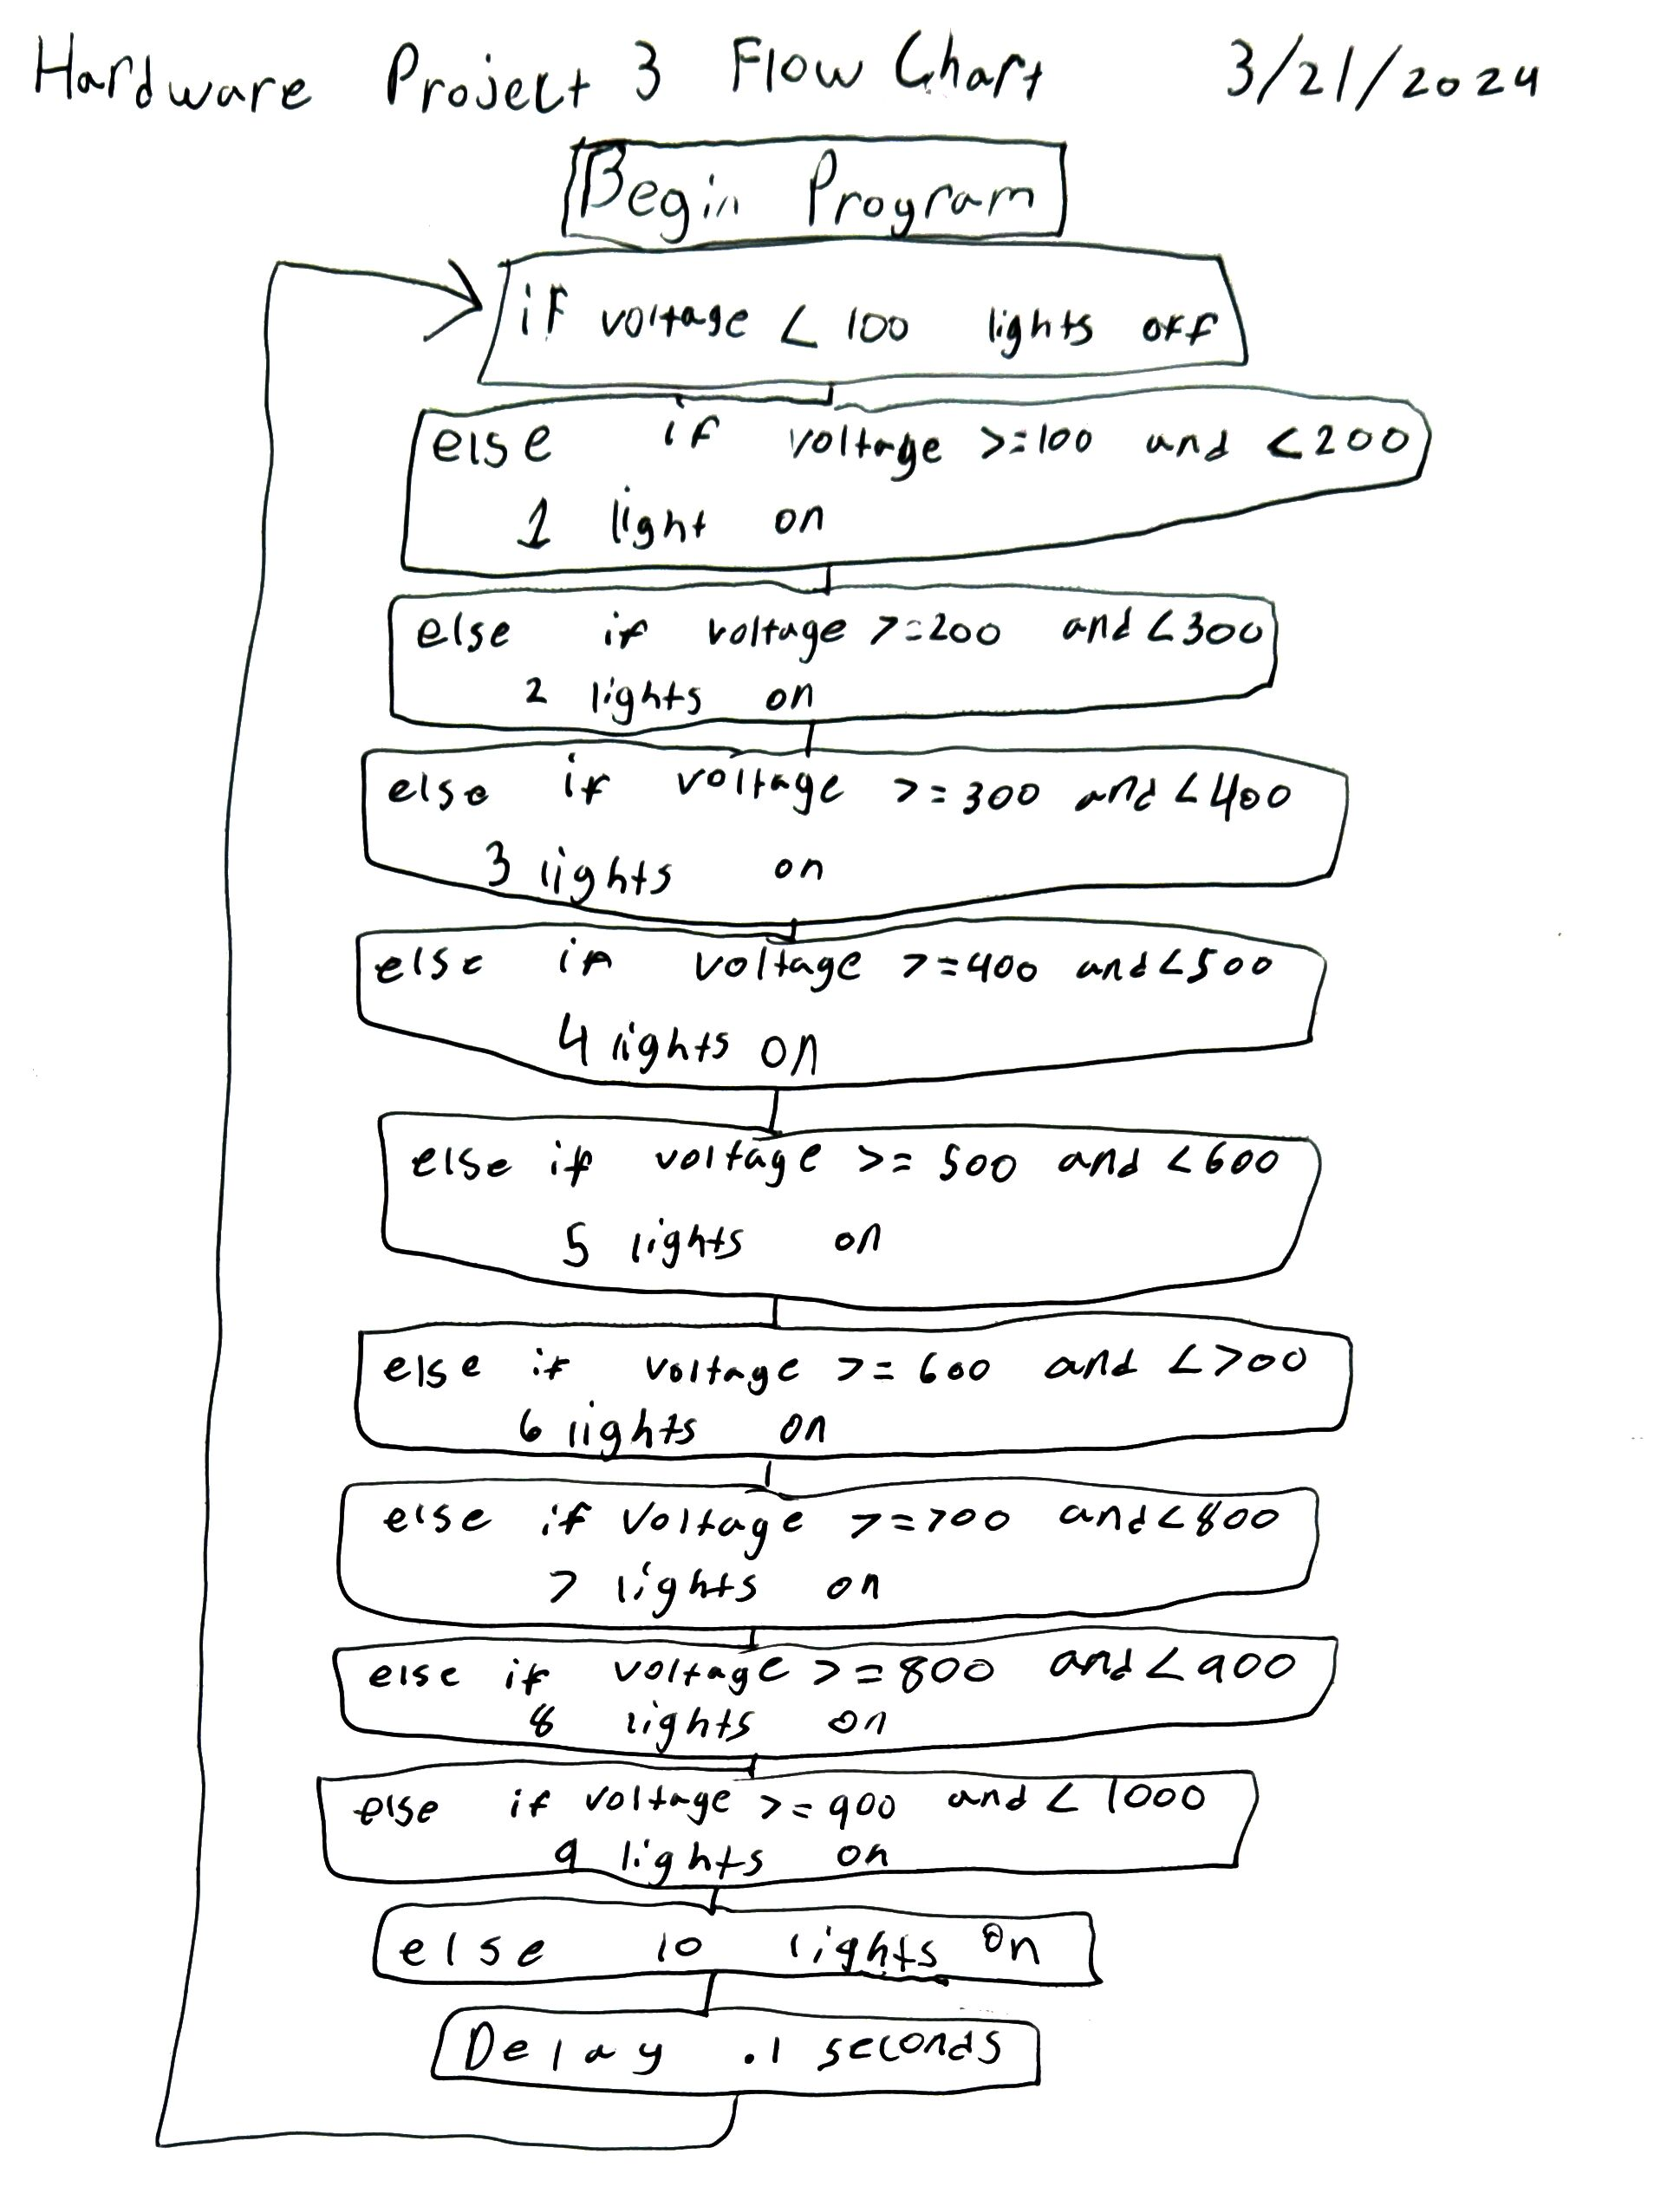 Hardware Project 3 Flow Chart 3/21/2024
Begin Program
if voltage < 100 lights off
else if voltage >=100 and <200
1 light on
else if voltage >=200 and <300
2 lights on
else if voltage >=300 and <400
3 lights on
else if voltage >=400 and <500
4 lights on
else if voltage >= 500 and <600
5 lights on
else if voltage >= 600 and <700
6 lights on
else if voltage >=700 and <800
7 lights on
else if voltage >=800 and <900
8 lights on
else if voltage >=900 and < 1000
9 lights on
else 10 lights on
Delay .1 seconds